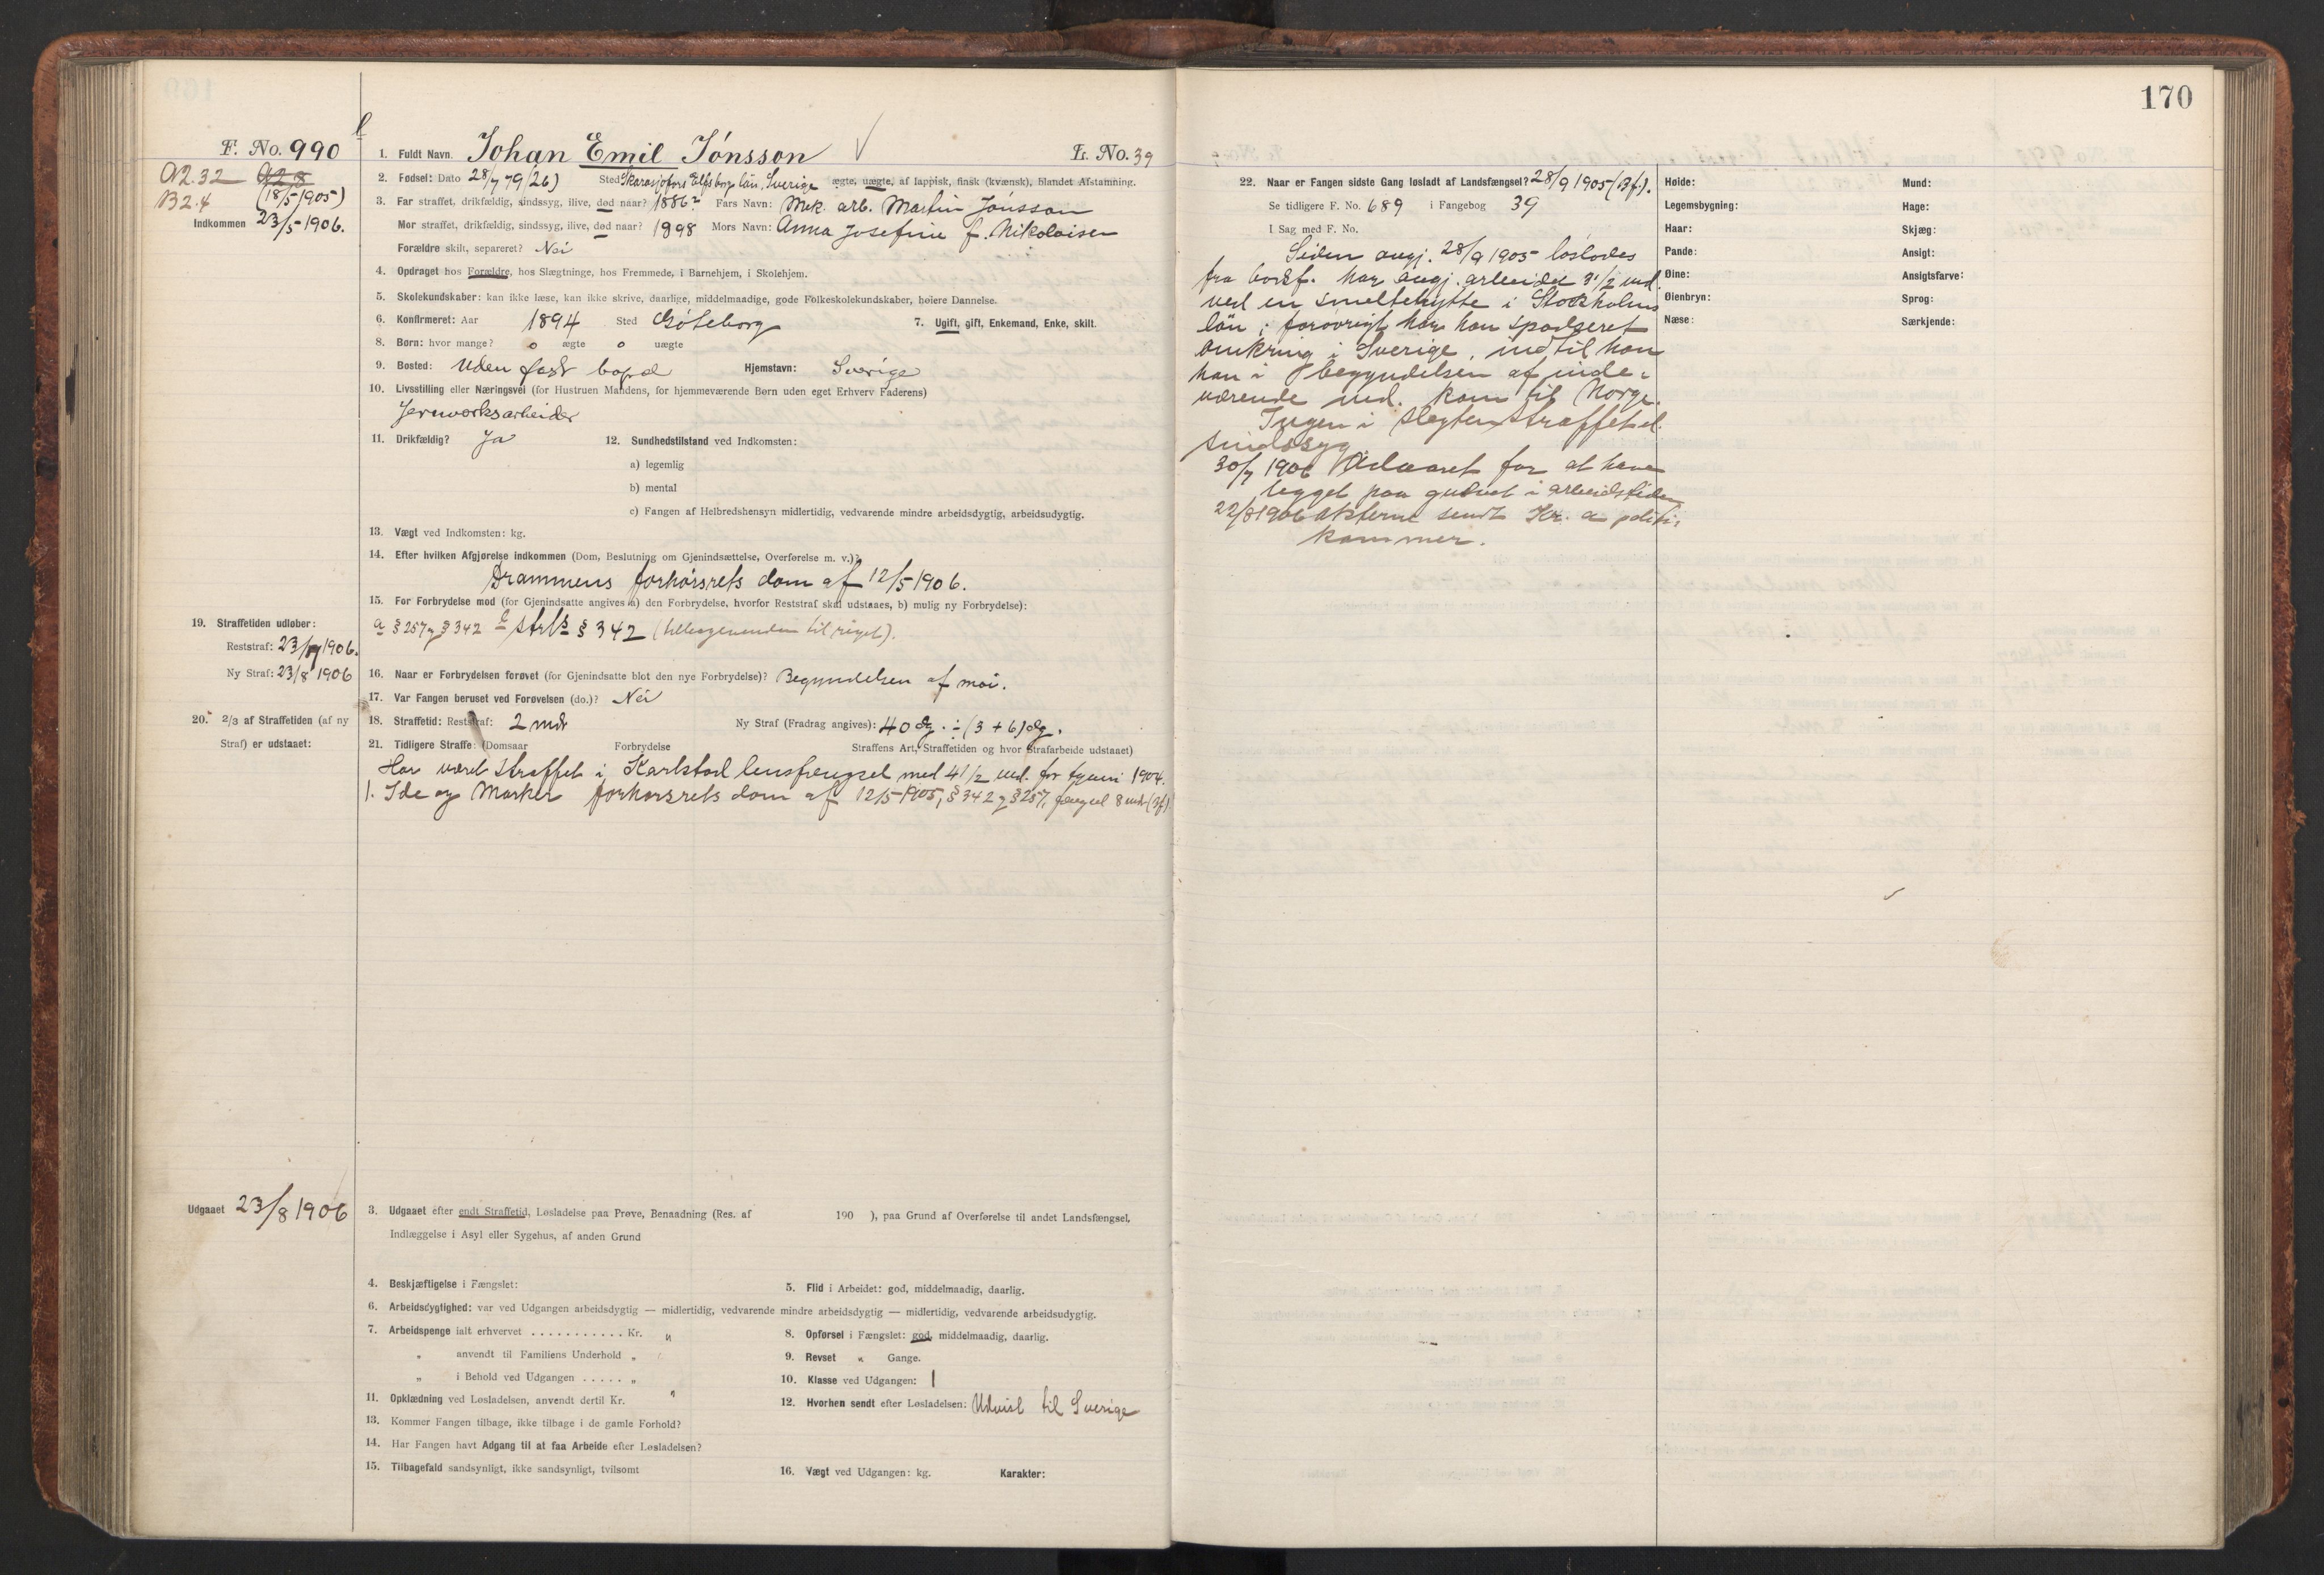 170
F. No. 990
A2.32 A2 8
B2.4 (18/5 1905)
Indkommen 23/5 1906.
1. Fuldt Navn. Johan Emil Jónsson L. No. 39
2. Fødsel: Dato 28/7 79 (26) Sted Elfsborgs län, Sverige ægte, uægte, af lappisk, finsk (kvænsk), blandet Afstamning.
3. Far straffet, drikfældig, sindssyg, ilive, død naar? 1886? Fars Navn: Mek. arb. Martin Jónsson
Mor straffet, drikfældig, sindssyg, ilive, død naar? 1898 Mors Navn: Anna Josefine f. Nikolaisen
Forældre skilt, separeret? Nei
4. Opdraget hos Forældre, hos Slægtninge, hos Fremmede, i Barnehjem, i Skolehjem.
5. Skolekundskaber: kan ikke læse, kan ikke skrive, daarlige, middelmaadige, gode Folkeskolekundskaber, høiere Dannelse.
6. Konfirmeret: Aar 1894 Sted Göteborg 7. Ugift, gift, Enkemand, Enke, skilt.
8. Børn: hvor mange? 0 ægte 0 uægte
9. Bosted: Uden fast bopæl Hjemstavn: Sverige
10. Livsstilling eller Næringsvei (for Hustruen Mandens, for hjemmeværende Børn uden eget Erhverv Faderens)
Jernverksarbeider
11. Drikfældig? Ja 12. Sundhedstilstand ved Indkomsten:
a) legemlig
b) mental
c) Fangen af Helbredshensyn midlertidig, vedvarende mindre arbeidsdygtig, arbeidsudygtig.
13. Vægt ved Indkomsten: kg.
14. Efter hvilken Afgjørelse indkommen (Dom, Beslutning om Gjenindsættelse, Overførelse m. v.)?
Drammens forhørsrets dom af 12/5 1906.
15. For Forbrydelse mod (for Gjenindsatte angives a) den Forbrydelse, hvorfor Reststraf skal udstaaes, b) mulig ny Forbrydelse):
a § 257 og § 342 b Strl § 342 (tilbagevenden til riget).
19. Straffetiden udløber:
Reststraf: 23/7 1906.
Ny Straf: 23/8 1906
16. Naar er Forbrydelsen forøvet (for Gjenindsatte blot den nye Forbrydelse)? Begyndelsen af mai.
17. Var Fangen beruset ved Forøvelsen (do.)? Nei
20. 2/3 af Straffetiden (af ny
Straf) er udstaaet:
18. Straffetid: Reststraf: 2 mdr Ny Straf (Fradrag angives): 40 dg. ÷ (3 + 6) dg.
21. Tidligere Straffe: (Domsaar Forbrydelse Straffens Art, Straffetiden og hvor Strafarbeide udstaaet)
Har været straffet i Karlstad lensfængsel med 4 1/2 md. for tyveri 1904.
1. Ide og Marker forhørsrets dom af 12/5 1905, § 342 og § 257, fængsel 8 mdr (Bf)
Udgaaet 23/8 1906
3. Udgaaet efter endt Straffetid, Løsladelse paa Prøve, Benaadning (Res. af 190 ), paa Grund af Overførelse til andet Landsfængsel.
Indlæggelse i Asyl eller Sygehus, af anden Grund
4. Beskjæftigelse i Fængslet: 5. Flid i Arbeidet: god, middelmaadig, daarlig.
6. Arbeidsdygtighed: var ved Udgangen arbeidsdygtig — midlertidig, vedvarende mindre arbeidsdygtig — midlertidig, vedvarende arbeidsudygtig.
7. Arbeidspenge ialt erhvervet . . . . . . . . . . . Kr. " 8. Opførsel i Fængslet: god, middelmaadig, daarlig.
" anvendt til Familiens Underhold " 9. Revset " Gange.
" i Behold ved Udgangen . . . . . " 10. Klasse ved Udgangen: 1
11. Opklædning ved Løsladelsen, anvendt dertil Kr. " 12. Hvorhen sendt efter Løsladelsen: Udvist til Sverige
13. Kommer Fangen tilbage, ikke tilbage i de gamle Forhold?
14. Har Fangen havt Adgang til at faa Arbeide efter Løsladelsen?
15. Tilbagefald sandsynligt, ikke sandsynligt, tvilsomt 16. Vægt ved Udgangen: kg. Karakter:
22. Naar er Fangen sidste Gang løsladt af Landsfængsel? 28/9 1905 (Bf.).
Se tidligere F. No. 689 i Fangebog 39
I Sag med F. No.
Siden angj. 28/9 1905 løslodes
fra bodsf. har angj. arbeidet 3 1/2 md.
ved en smeltehytte i Stockholms
län; forøvrigt har han spadseret
omkring i Sverige, indtil han
han i begyndelsen af inde-
værende md. kom til Norge.
Ingen i slegten straffet el.
sindssyg
30/7 1906 Advaret for at have
ligget paa gulvet i arbeidstiden
22/8 1906 Akterne sendt Kr. a politi-
kammer.
Høide:
Legemsbygning:
Haar:
Pande:
Øine:
Øienbryn:
Næse:
Mund:
Hage:
Skjæg:
Ansigt:
Ansigtsfarve:
Sprog:
Særkjende: